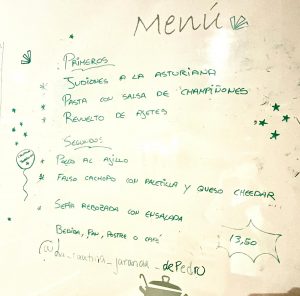 Menú
PRIMEROS
JUDIONES A LA ASTURIANA
PASTA CON SALSA DE CHAMPIÑONES
REVUELTO DE AJETES
SEGUNDOS
POLLO AL AJILLO
FALSO CACHOPO CON PALETILLA Y QUESO CHEEDAR
SEPIA REBOZADA CON ENSALADA
BEBIDA, PAN, POSTRE O CAFÉ
13,50
de Pedro